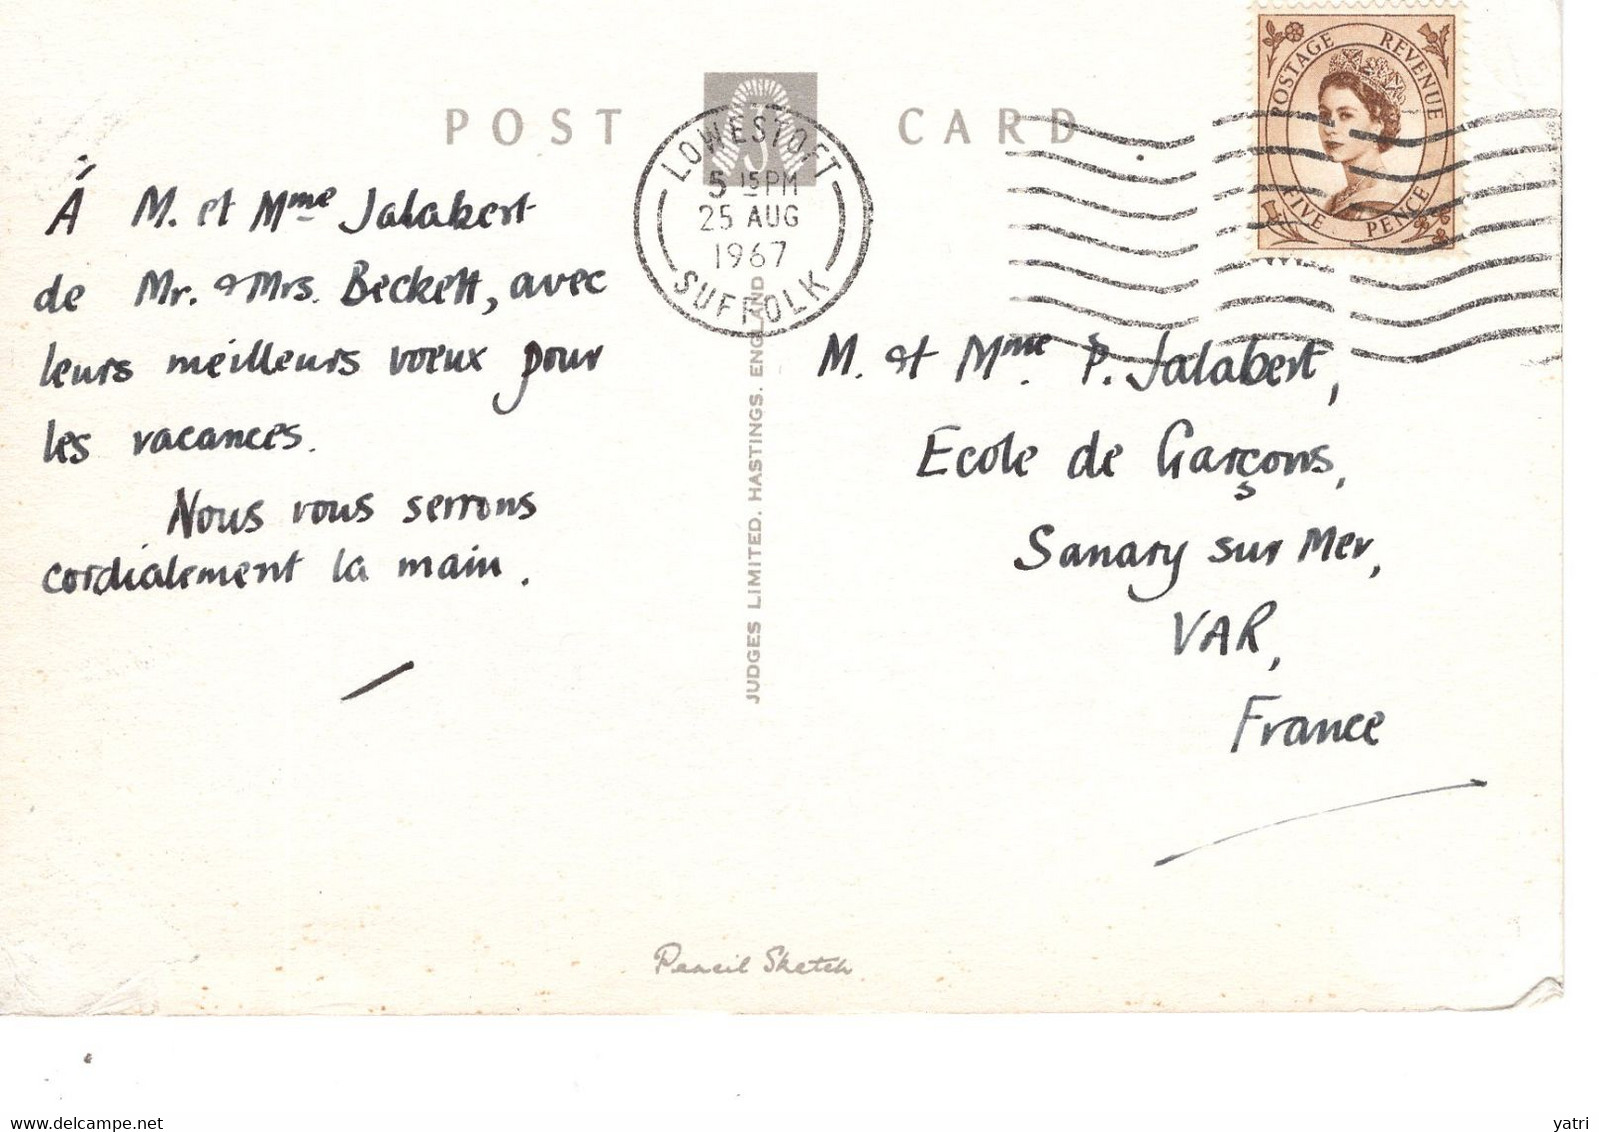 POST CARD
J
LOWESTOFT
5 15 PM
25 AUG
1967
SUFFOLK
POSTAGE REVENUE
FIVE PENCE
Á M. et Mme Jalabert
de Mr. & Mrs. Beckett, avec
leurs meilleurs voeux pour
les vacances.
Nous vous serrons
cordialement la main.
JUDGES LIMITED. HASTINGS. ENGLAND
M. et Mme. P. Jalabert,
Ecole de Garçons,
Sanary sur Mer,
VAR,
France
Pencil Sketch
Delcampe.net
yatri